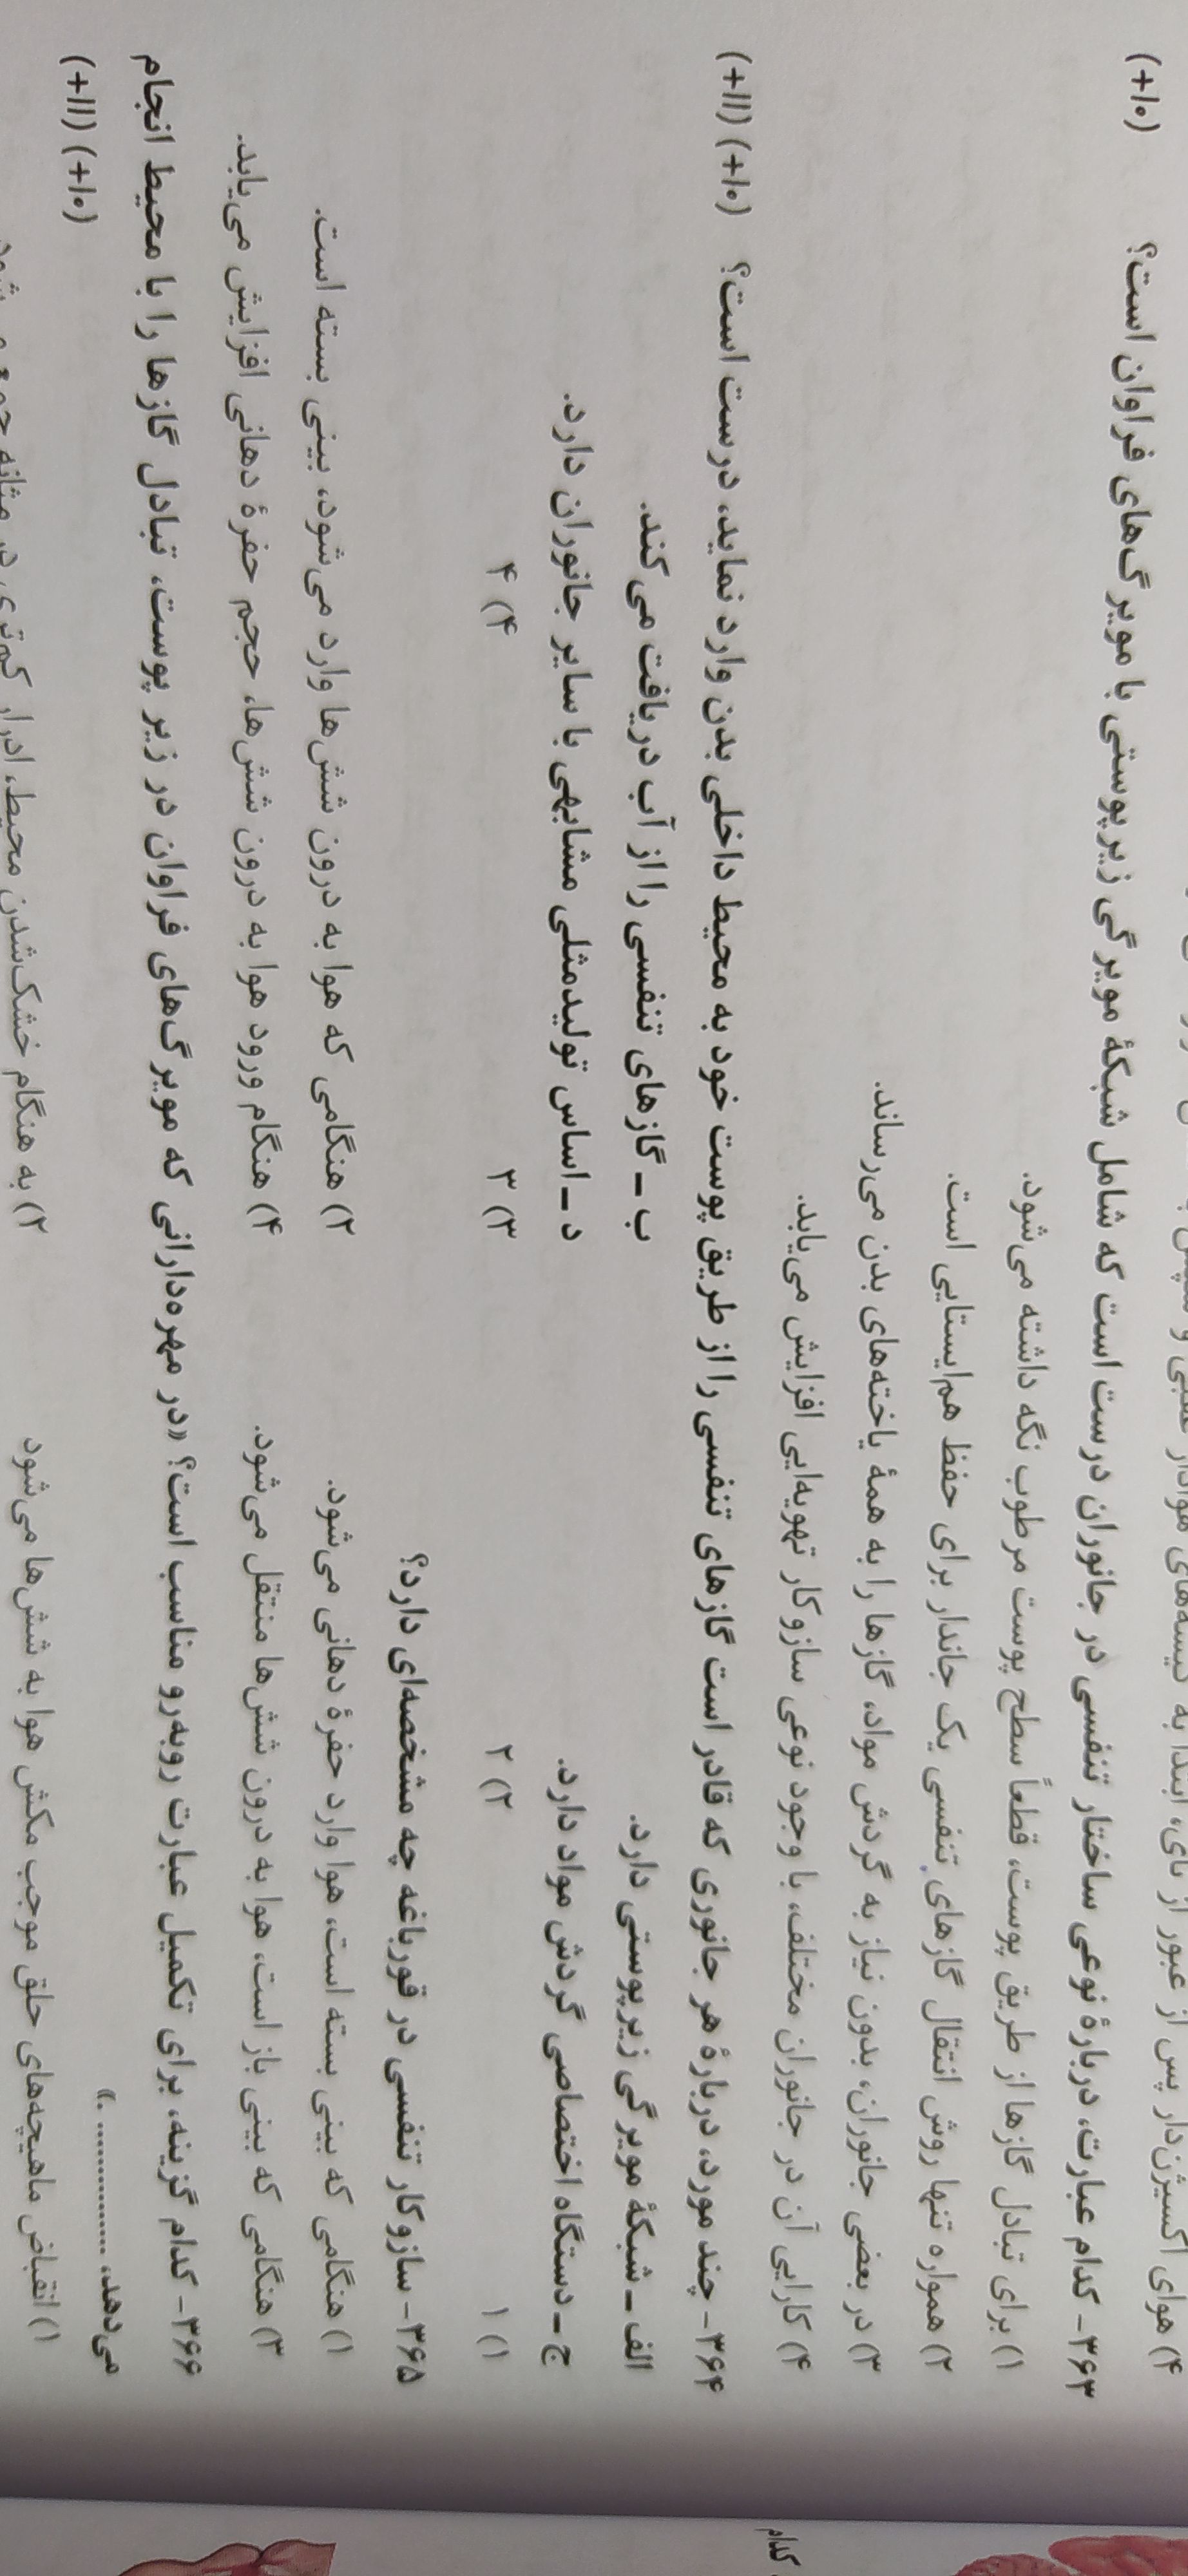 ۴) هوای اکسیژن‌دار پس از عبور از نای، ابتدا به کیسه‌های هوادار
۳۶۳- کدام عبارت، دربارهٔ نوعی ساختار تنفسی در جانوران درست است که شامل شبکهٔ مویرگی زیرپوستی با مویرگ‌های فراوان است؟ (+۱۰)
۱) برای تبادل گازها از طریق پوست، قطعاً سطح پوست مرطوب نگه داشته می‌شود.
۲) همواره تنها روش انتقال گازهای تنفسی یک جاندار برای حفظ هم‌ایستایی است.
۳) در بعضی جانوران، بدون نیاز به گردش مواد، گازها را به همهٔ یاخته‌های بدن می‌رساند.
۴) کارایی آن در جانوران مختلف، با وجود نوعی سازوکار تهویه‌ایی افزایش می‌یابد.
۳۶۴- چند مورد، دربارهٔ هر جانوری که قادر است گازهای تنفسی را از طریق پوست خود به محیط داخلی بدن وارد نماید، درست است؟ (+۱۰) (+۱۱)
الف ـ شبکهٔ مویرگی زیرپوستی دارد. ب ـ گازهای تنفسی را از آب دریافت می‌کند.
ج ـ دستگاه اختصاصی گردش مواد دارد. د ـ اساس تولیدمثلی مشابهی با سایر جانوران دارد.
۱) ۱ ۲) ۲ ۳) ۳ ۴) ۴
۳۶۵- سازوکار تنفسی در قورباغه چه مشخصه‌ای دارد؟
۱) هنگامی که بینی بسته است، هوا وارد حفرهٔ دهانی می‌شود. ۲) هنگامی که هوا به درون شش‌ها وارد می‌شود، بینی بسته است.
۳) هنگامی که بینی باز است، هوا به درون شش‌ها منتقل می‌شود. ۴) هنگام ورود هوا به درون شش‌ها، حجم حفرهٔ دهانی افزایش می‌یابد.
۳۶۶- کدام گزینه، برای تکمیل عبارت روبه‌رو مناسب است؟ «در مهره‌دارانی که مویرگ‌های فراوان در زیر پوست، تبادل گازها را با محیط انجام
می‌دهد، .............. .» (+۱۰) (+۱۱)
۱) انقباض ماهیچه‌های حلق موجب مکش هوا به شش‌ها می‌شود ۲) به هنگام خشک‌شدن محیط، ادرار کم‌تری در مثانه
کدام